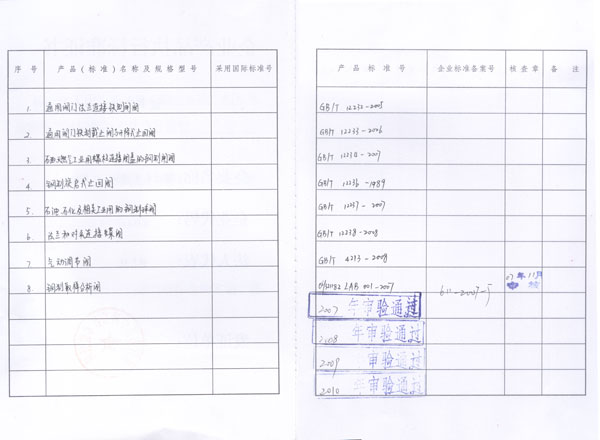 序 号 产品(标准)名称及规格型号 采用国际标准号
1. 通用阀门法兰连接铁制闸阀
2. 通用阀门铁制截止阀与升降式止回阀
3. 石油、天然气工业用螺柱连接阀盖的钢制闸阀
4. 钢制旋启式止回阀
5. 石油、石化及相关工业用的钢制球阀
6. 法兰和对夹连接蝶阀
7 气动调节阀
8
产 品 标 准 号 企业标准备案号 核查章 备 注
GB/T 12232-2005
GB/T 12233-2006
GB/T 12234-2007
GB/T 12236-1989
GB/T 12237-2007
GB/T 12238-2008
GB/T 4213-2008
LAB 001-2007
07年11月
2007 年审验通过
2008 年审验通过
2009 审验通过
2010 年审验通过